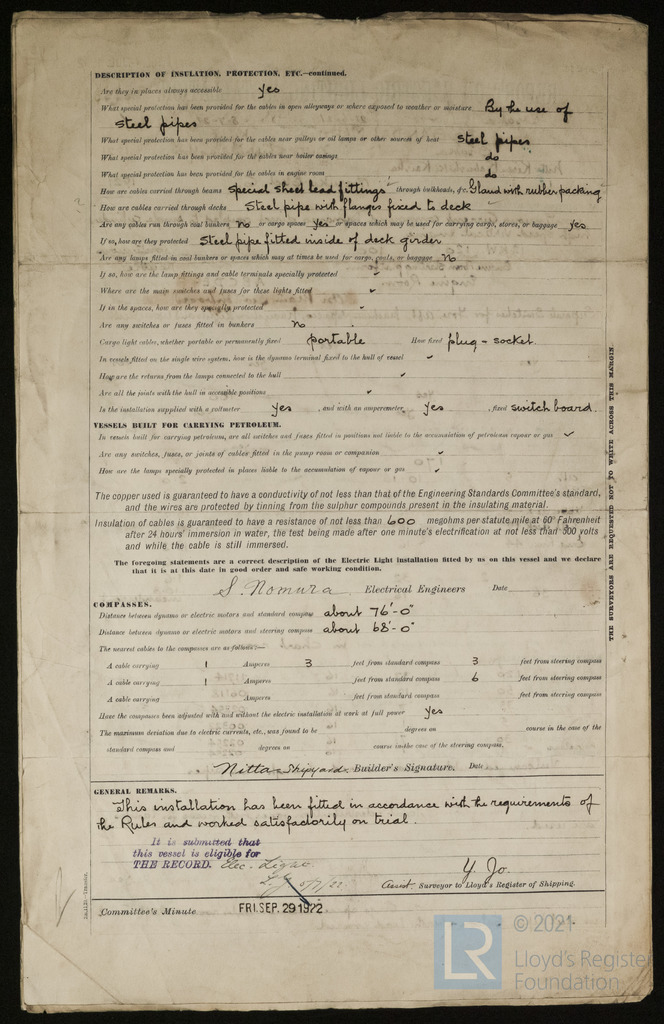 DESCRIPTION OF INSULATION, PROTECTION, ETC.—continued.
Are they in places always accessible yes
What special protection has been provided for the cables in open alleyways or where exposed to weather or moisture By the use of
steel pipes
What special protection has been provided for the cables near galleys or oil lamps or other sources of heat steel pipes
What special protection has been provided for the cables near boiler casings do
What special protection has been provided for the cables in engine room do
How are cables carried through beams special sheet lead fittings through bulkheads, &c. Gland with rubber packing
How are cables carried through decks Steel pipe with flanges fixed to deck
Are any cables run through coal bunkers no or cargo spaces yes or spaces which may be used for carrying cargo, stores, or baggage yes
If so, how are they protected Steel pipe fitted inside of deck girder
Are any lamps fitted in coal bunkers or spaces which may at times be used for cargo, coals, or baggage No
If so, how are the lamp fittings and cable terminals specially protected ✓
Where are the main switches and fuses for these lights fitted ✓
If in the spaces, how are they specially protected ✓
Are any switches or fuses fitted in bunkers no
Cargo light cables, whether portable or permanently fixed portable How fixed plug - socket.
In vessels fitted on the single wire system, how is the dynamo terminal fixed to the hull of vessel ✓
How are the returns from the lamps connected to the hull ✓
Are all the joints with the hull in accessible positions ✓
Is the installation supplied with a voltmeter yes , and with an amperemeter yes , fixed switch board.
VESSELS BUILT FOR CARRYING PETROLEUM.
In vessels built for carrying petroleum, are all switches and fuses fitted in positions not liable to the accumulation of petroleum vapour or gas ✓
Are any switches, fuses, or joints of cables fitted in the pump room or companion ✓
How are the lamps specially protected in places liable to the accumulation of vapour or gas ✓
The copper used is guaranteed to have a conductivity of not less than that of the Engineering Standards Committee's standard,
and the wires are protected by tinning from the sulphur compounds present in the insulating material.
Insulation of cables is guaranteed to have a resistance of not less than 600 megohms per statute mile at 60° Fahrenheit
after 24 hours' immersion in water, the test being made after one minute's electrification at not less than 500 volts
and while the cable is still immersed.
The foregoing statements are a correct description of the Electric Light installation fitted by us on this vessel and we declare
that it is at this date in good order and safe working condition.
S. Nomura Electrical Engineers Date
COMPASSES.
Distance between dynamo or electric motors and standard compass about 76'-0"
Distance between dynamo or electric motors and steering compass about 68'-0"
The nearest cables to the compasses are as follows:—
A cable carrying 1 Amperes 3 feet from standard compass 3 feet from steering compass
A cable carrying 1 Amperes feet from standard compass 6 feet from steering compass
A cable carrying Amperes feet from standard compass feet from steering compass
Have the compasses been adjusted with and without the electric installation at work at full power yes
The maximum deviation due to electric currents, etc., was found to be degrees on course in the case of the
standard compass and degrees on course in the case of the steering compass.
Nitta Shipyard. Builder's Signature. Date
GENERAL REMARKS.
This installation has been fitted in accordance with the requirements of
the Rules and worked satisfactorily on trial.
It is submitted that
this vessel is eligible for
THE RECORD. Elec. Light.
Y. Jo.
Assist. Surveyor to Lloyd's Register of Shipping.
Committee's Minute FRI. SEP. 29 1922
THE SURVEYORS ARE REQUESTED NOT TO WRITE ACROSS THIS MARGIN.
LR
© 2021
Lloyd's Register
Foundation